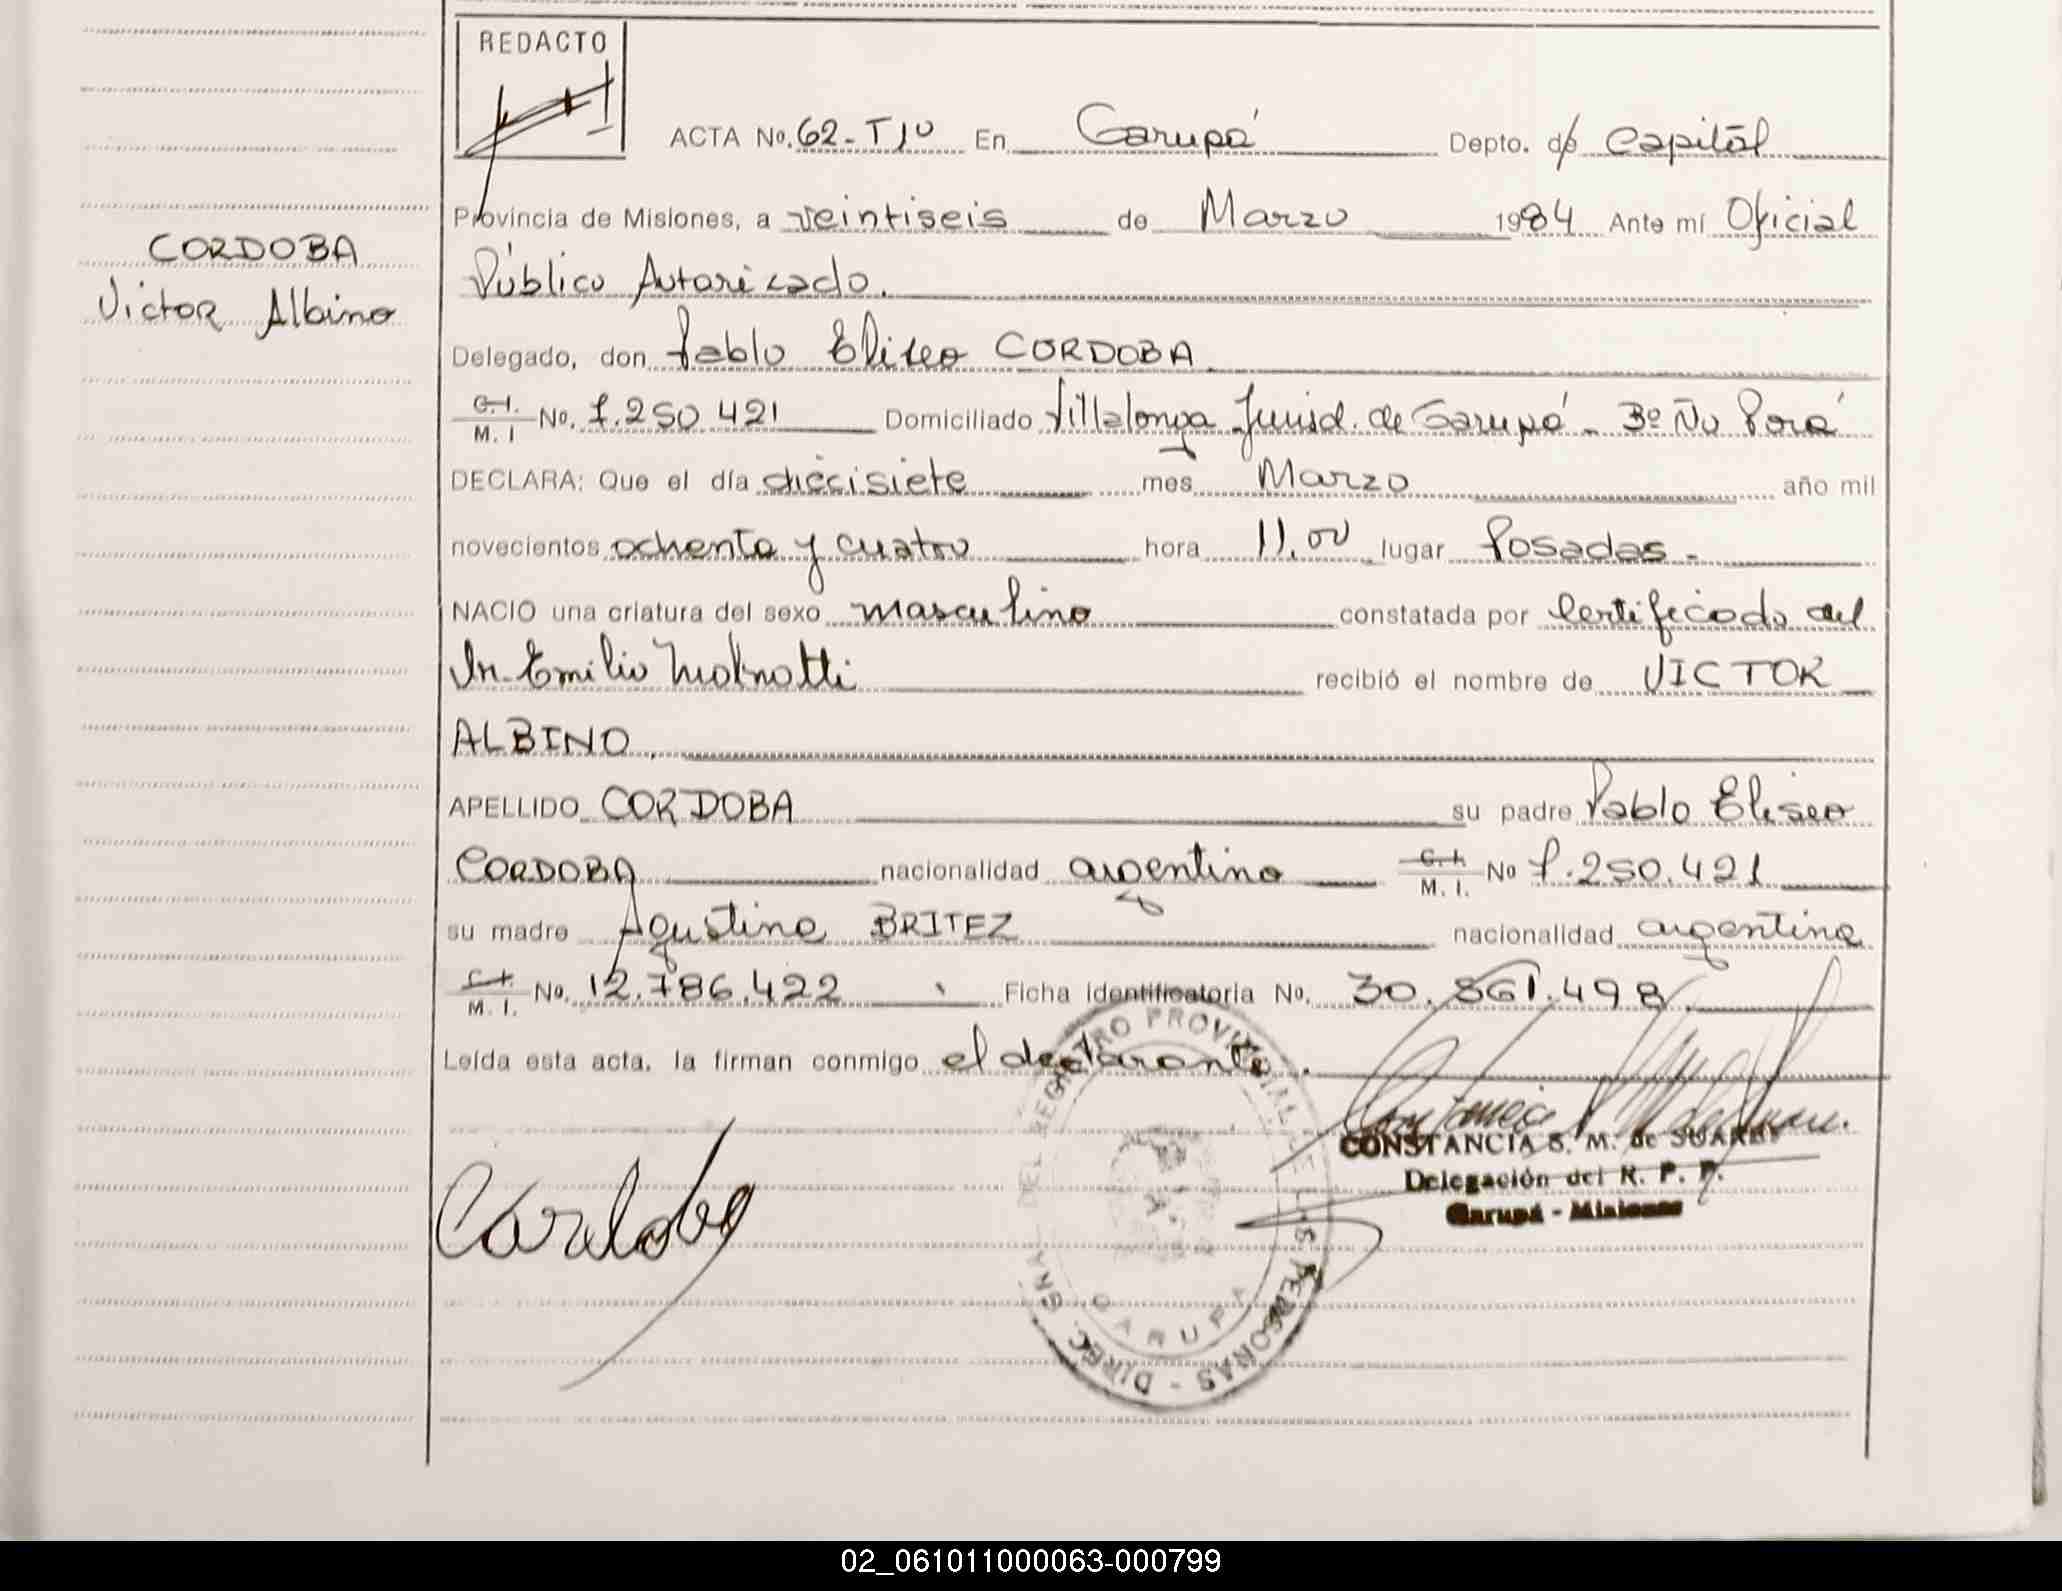 REDACTO
ACTA No. 62-Tjo En Garupá Depto. de Capital
Provincia de Misiones, a veintiseis de Marzo 1984 Ante mí Oficial
CORDOBA
Público Autorizado.
Victor Albino
Delegado, don Pablo Eliseo CORDOBA
C.I. M. I No. 7.250.421 Domiciliado Villalonga Jurisd. de Garupá - Bº Ñu Porá
DECLARA: Que el día diecisiete mes Marzo año mil
novecientos ochenta y cuatro hora 11.00 lugar Posadas-
NACIO una criatura del sexo masculino constatada por Certificado del
Dr. Emilio recibió el nombre de VICTOR
ALBINO
APELLIDO CORDOBA su padre Pablo Eliseo
CORDOBA nacionalidad argentino C.I. M. I. No 7.250.421
su madre Agustina BRITEZ nacionalidad argentina
C.I. M. I. No. 12.786.422 Ficha identificatoria No. 30.861.498
Leída esta acta, la firman conmigo el declarante.
Cordoba
CONSTANCIA S. M. de SUAREZ
Delegación del R. P. P.
Garupá - Misiones
DIREC. GRAL. DEL REGISTRO PROVINCIAL DE LAS PERSONAS -
GARUPA
02_061011000063-000799